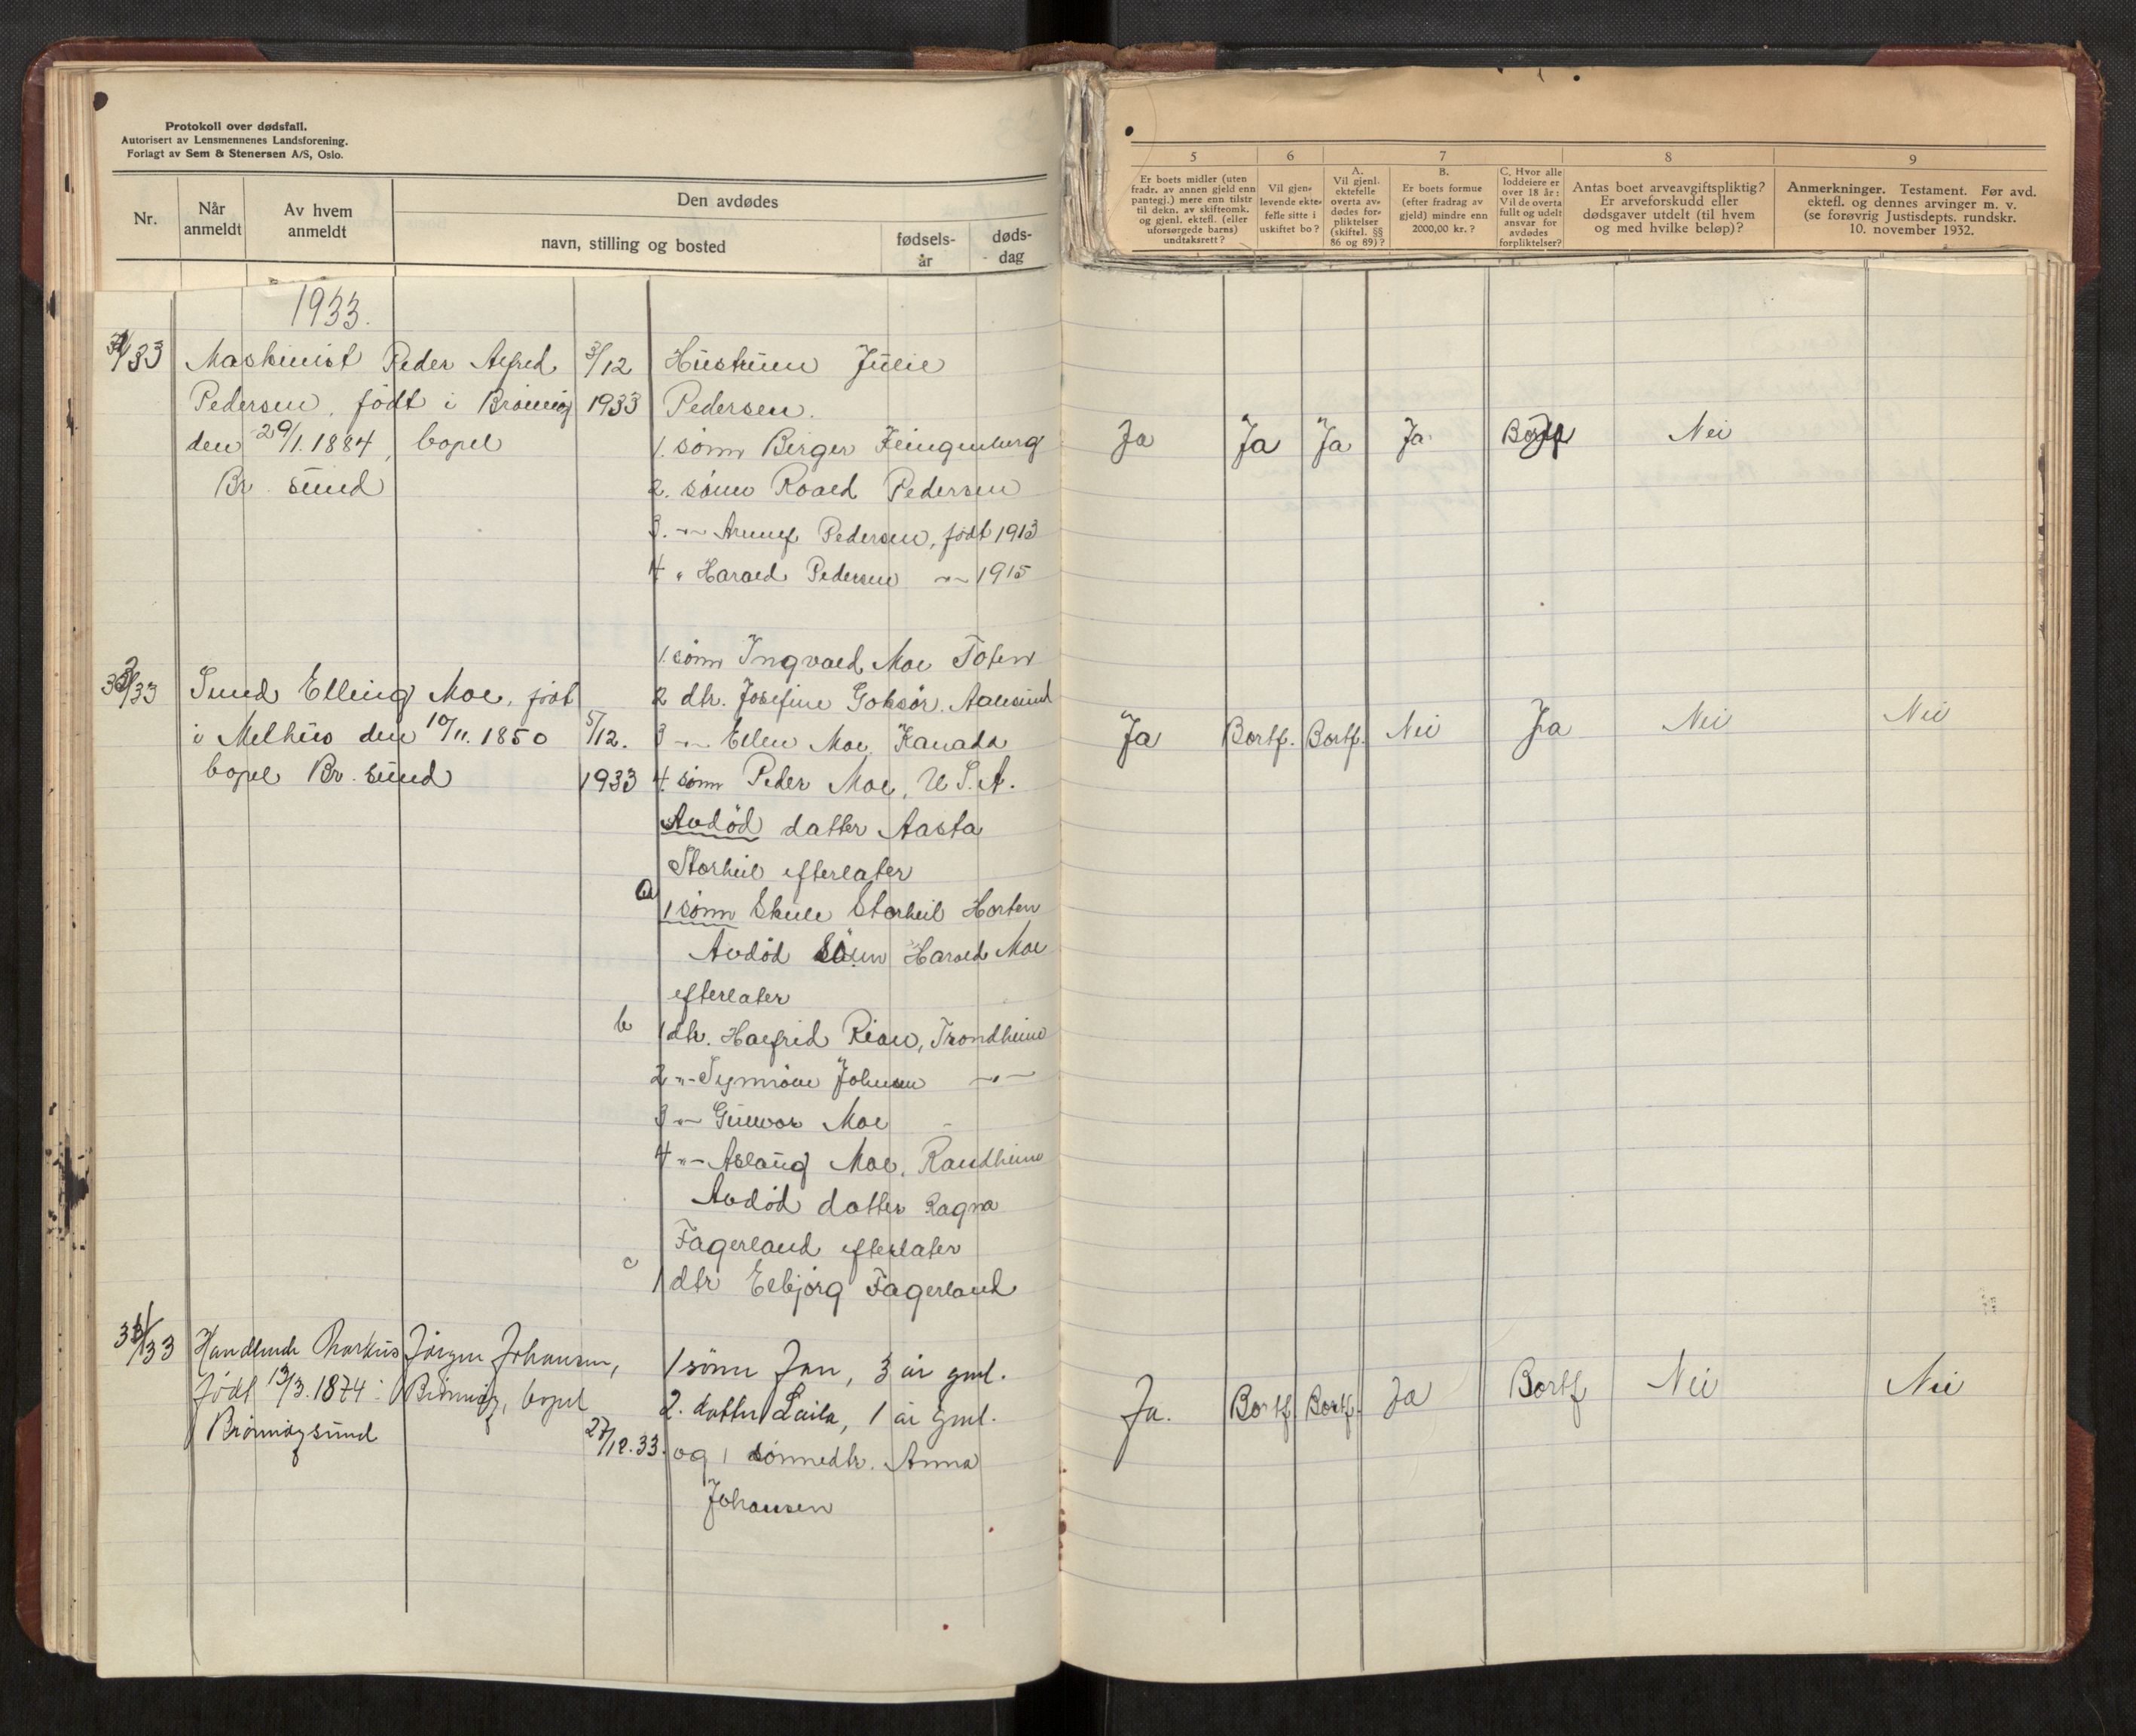 Protokoll over dødsfall.
Autorisert av Lensmennenes Landsforening.
Forlagt av Sem & Stenersen A/S, Oslo.
Nr.
Når anmeldt
Av hvem anmeldt
Den avdødes
navn, stilling og bosted
fødsels-
år
døds-
dag
1933.
/33 Maskinist Peder Alfred
Pedersen, født i Brønnøy
den 29/1.1884, bopel
Br. sund
3/12
1933
Hustruen Julie
Pedersen.
1. sønn Birger Klingenberg
2. sønn Roald Pedersen
3. -"- Pedersen, født 1913
4 " Harald Pedersen -"- 1915
/33 Smed Elling Moe, født
i Melhus den 10/11.1850
bopel Br. sund
5/12.
1933
1. sønn Ingvald Moe Toten
2 dtr. Josefine Goksør. Aalesund
3 -"- Ellen Moe, Kanada
4. sønn Peder Moe, U.S.A.
Avdød datter Aasta
Storheil efterlater
a
1 sønn Skule Storheil Horten
Avdød sønn Harald Moe
efterlater
b
1 dtr. Halfrid Rian, Trondheim
2 -"- Synnøve Johnsen -"-
3 -"- Gunvor Moe
4 -"- Aslaug Moe, Ranheim
Avdød datter Ragna
Fagerland efterlater
c
1 dtr Eilbjørg Fagerland
/33 Handlende Markus Jørgen Johansen,
født 13/3.1874 i Brønnøy, bopel
Brønnøysund
27/12.33.
1 sønn Jan, 3 år gml.
2. datter Laila, 1 år gml.
og 1 sønnedtr. Anna
Johansen
5
6
7
8
9
Er boets midler (uten
fradr. av annen gjeld enn
pantegj.) mere enn tilstr
til dekn. av skifteomk.
og gjenl. ektefl. (eller
uforsørgede barns)
undtaksrett?
Vil gjen-
levende ekte-
felle sitte i
uskiftet bo?
A.
Vil gjenl.
ektefelle
overta av-
dødes for-
pliktelser
(skiftel. §§
86 og 89)?
B.
Er boets formue
(efter fradrag av
gjeld) mindre enn
2000,00 kr.?
C. Hvor alle
loddeiere er
over 18 år:
Vil de overta
fullt og udelt
ansvar for
avdødes
forpliktelser?
Antas boet arveavgiftspliktig?
Er arveforskudd eller
dødsgaver utdelt (til hvem
og med hvilke beløp)?
Anmerkninger. Testament. Før avd.
ektefl. og dennes arvinger m. v.
(se forøvrig Justisdepts. rundskr.
10. november 1932.
Ja Ja Ja Ja Bortf Nei
Ja Bortf. Bortf. Nei Ja Nei Nei
Ja. Bortf Bortf. Ja Bortf Nei Nei